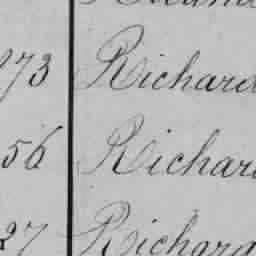 273 Richard
56 Richard
27 Richard